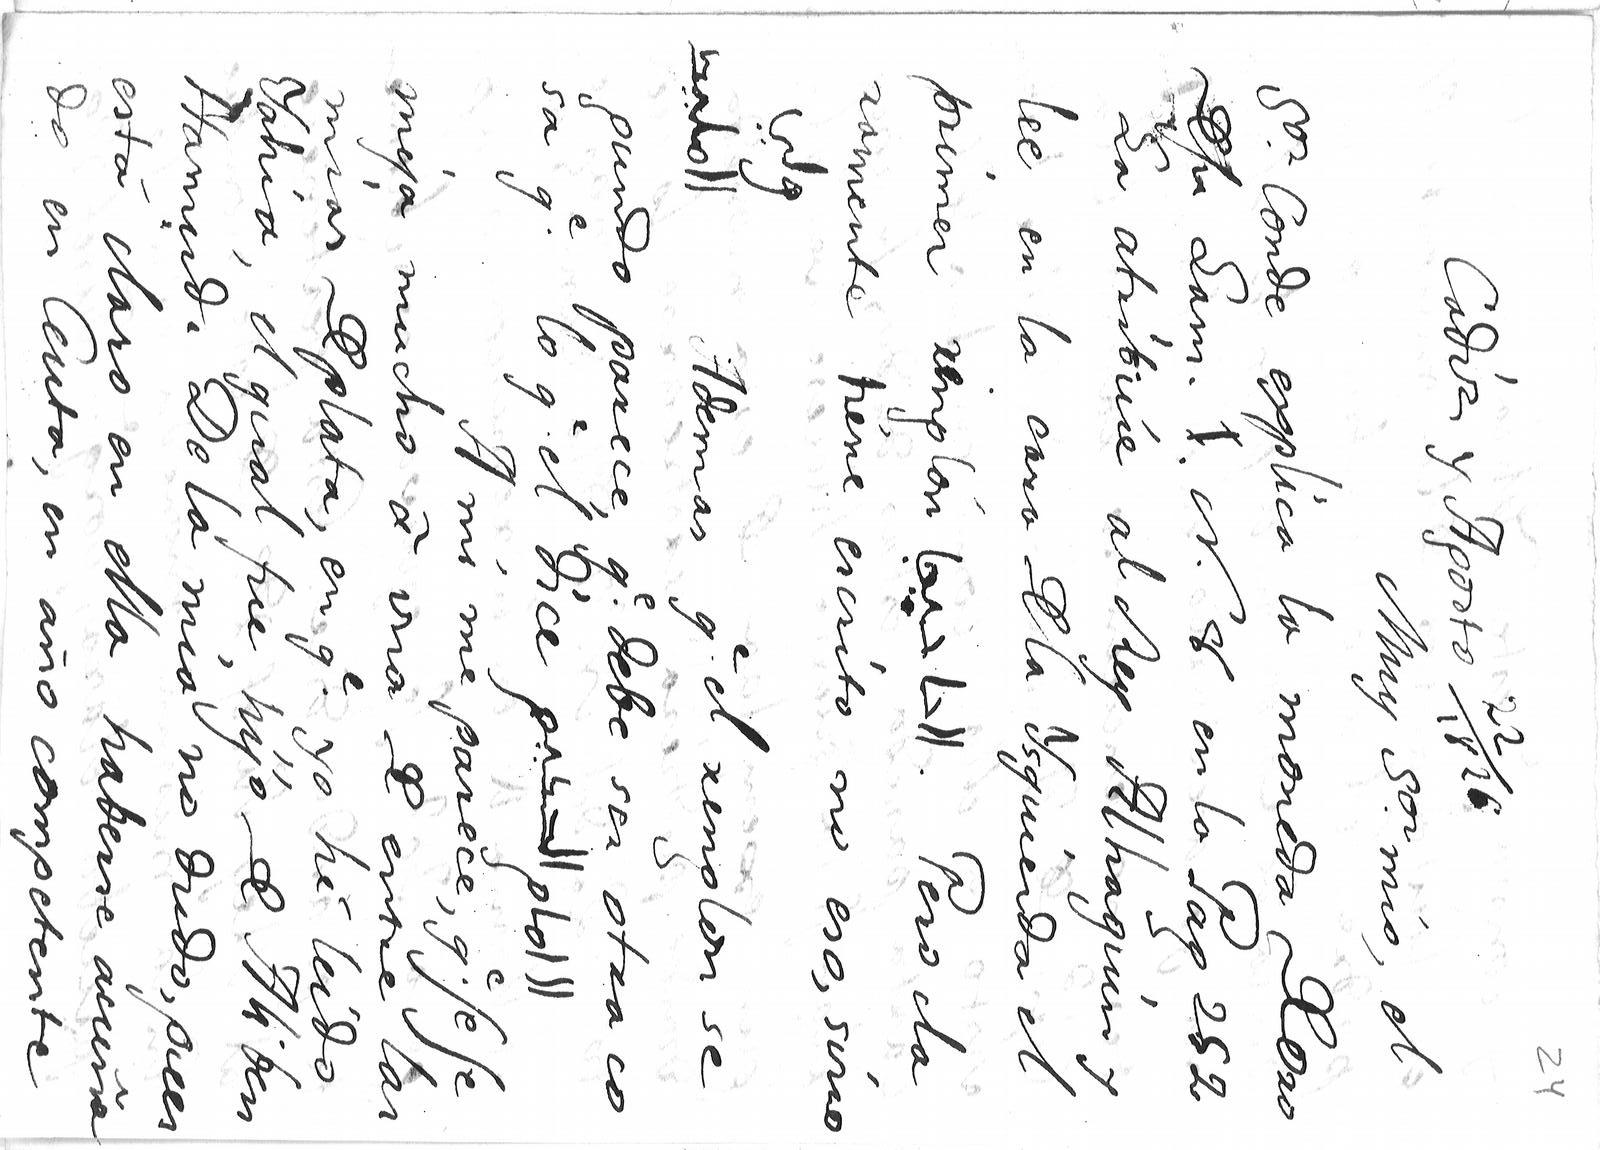 24
Cadiz y Agosto 22/1826
Muy Sor. mio, el
Sor. Conde explica la moneda D oro
D la Lam. 1. N. 8 en la Pag 252
La atribuíe al Rey Alhaquím y
lee en la cara D la Ysquierda el
primer renglón. Pero cla
ramente tiene escrito no eso, sino
Ademas q.e el renglon se
gundo parece, q.e debe ser otra co
sa q.e lo q.e el dice
A mi me parece, q.e se se
meja mucho à una D entre las
mias D plata, en q.e yo hé leido
Yahia, el qual fue, hijo D Ali ben
Hamud. De la mia no dudo, pues
está claro en ella haberse acuña
do en Ceuta, en año competente